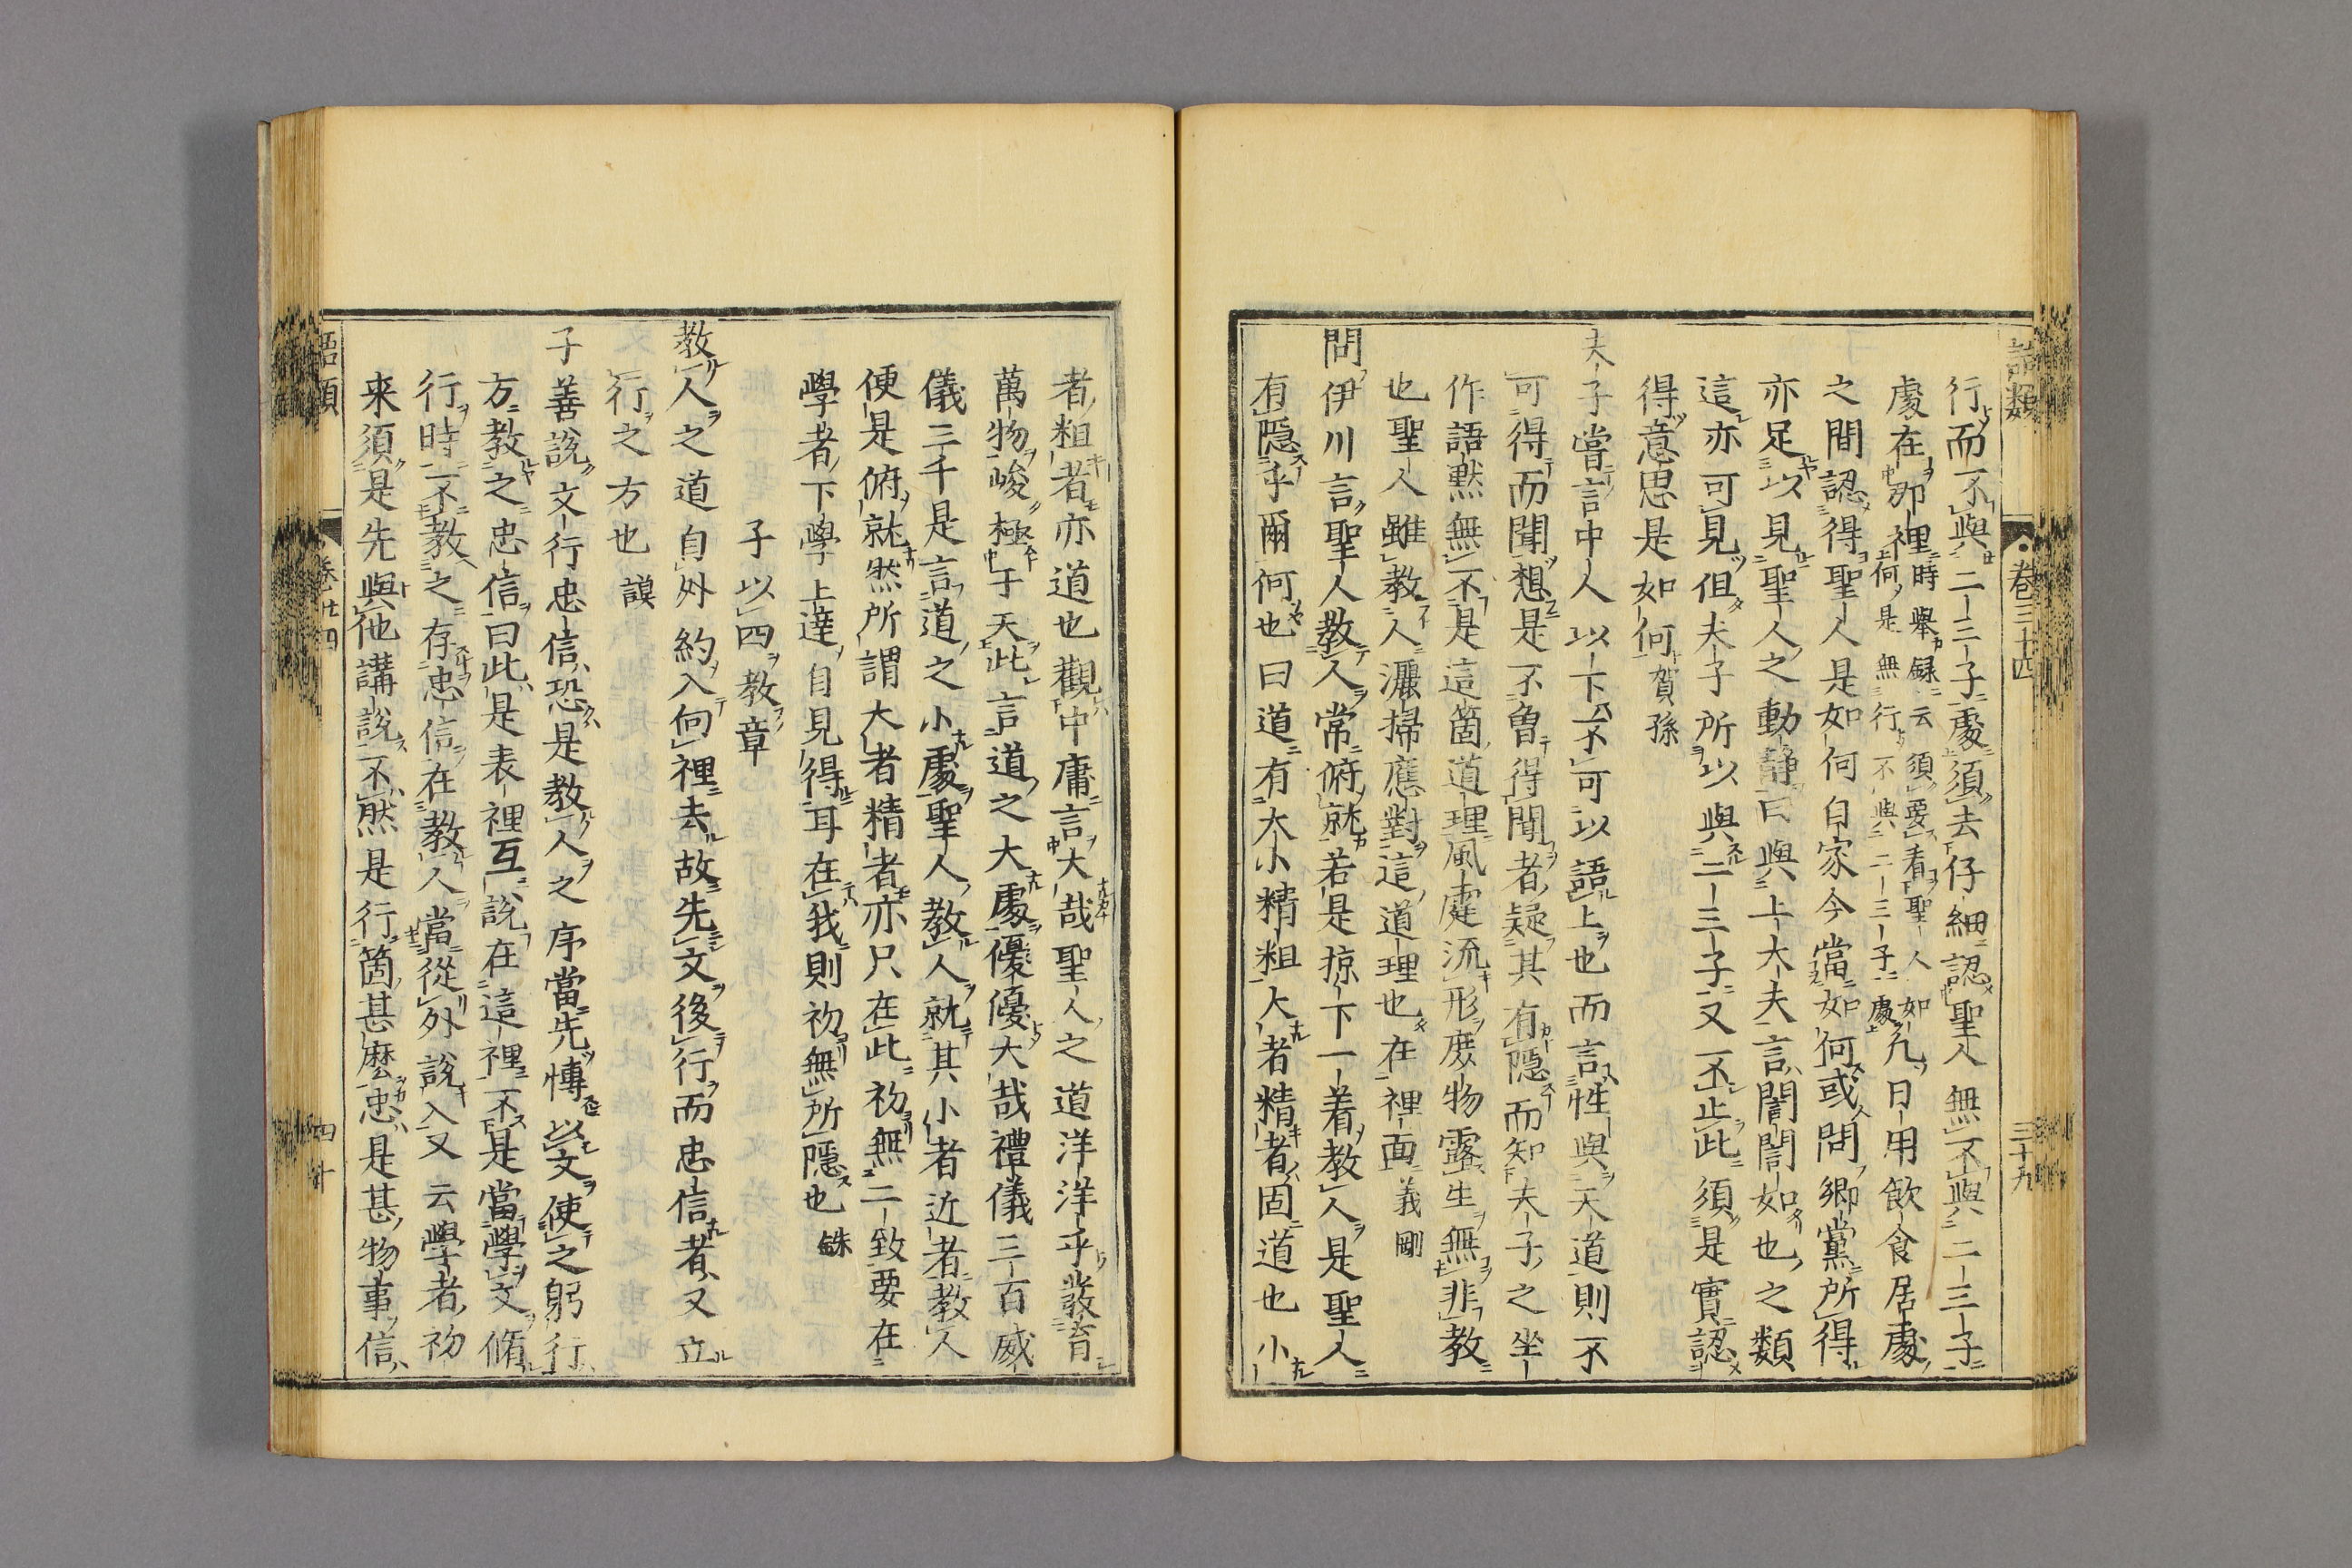 語類 卷三十四 三十九
行而不與二三子處須去仔細認聖人無不與二三子
處在那裡時舉録云須要看聖人如何是無行不與二三子處凡日用飲食居處
之間認得聖人是如何自家今當如何或問鄉黨所得
亦足以見聖人之動靜曰與上大夫言誾誾如也之類
這亦可見但夫子所以與二三子又不止此須是實認
得意思是如何賀孫
夫子嘗言中人以下不可以語上也而言性與天道則不
可得而聞想是不曽得聞者疑其有隱而知夫子之坐
作語黙無不是這箇道理風霆流形庶物露生無非教
也聖人雖教人灑掃應對這道理也在裡面義剛
問伊川言聖人教人常俯就若是掠下一着教人是聖人
有隱乎爾何也曰道有大小精粗大者精者固道也小
者粗者亦道也觀中庸言大哉聖人之道洋洋乎發育
萬物峻極于天此言道之大處優優大哉禮儀三百威
儀三千是言道之小處聖人教人就其小者近者教人
便是俯就然所謂大者精者亦只在此初無二致要在
學者下學上達自見得耳在我則初無所隱也銖
子以四教章
教人之道自外約入向裡去故先文後行而忠信者又立
行之方也謨
子善說文行忠信恐是教人之序當先博以文使之躬行
方教之忠信曰此是表裡互說在這裡不是當學文脩
行時不教之存忠信在教人當從外說入又云學者初
来須是先與他講說不然是行箇甚麽忠是甚物事信
語類 卷卅四 四十